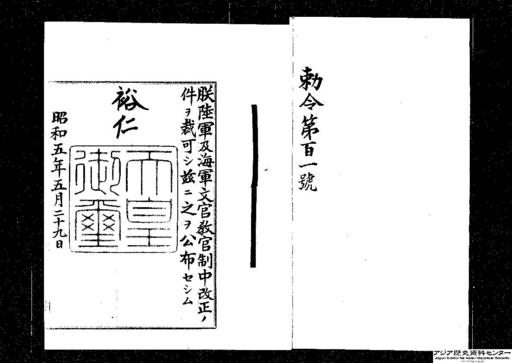 勅令第百一號
朕陸軍及海軍文官教官制中改正ノ
件ヲ裁可シ茲ニ之ヲ公布セシム
裕仁
天皇
御璽
昭和五年五月二十九日
アジア歴史資料センター
Japan Center for Asian Historical Records